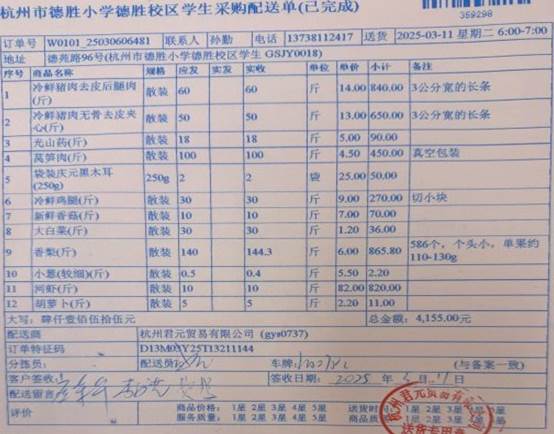 杭州市德胜小学德胜校区学生采购配送单(已完成)
359298
订单号 W0101_25030606481 联系人 孙勤 电话 13738112417 送货 2025-03-11 星期二 6:00-7:00
地址 德苑路96号(杭州市德胜小学德胜校区学生 GSJY0018)
序号 商品名称 规格 应发 实发 实收 单位 单价 小计 备注
1 冷鲜猪肉去皮后腿肉(斤) 散装 60 60 斤 14.00 840.00 3公分宽的长条
2 冷鲜猪肉无骨去皮夹心(斤) 散装 50 50 斤 13.00 650.00 3公分宽的长条
3 光山药(斤) 散装 18 18 斤 5.00 90.00
4 莴笋肉(斤) 散装 100 100 斤 4.50 450.00 真空包装
5 袋装庆元黑木耳(250g) 250g 2 2 袋 25.00 50.00
6 冷鲜鸡腿(斤) 散装 30 30 斤 9.00 270.00 切小块
7 新鲜香菇(斤) 散装 10 10 斤 7.00 70.00
8 大白菜(斤) 散装 30 30 斤 1.20 36.00
9 香梨(斤) 散装 140 144.3 斤 6.00 865.80 586个，个头小，单果约110-130g
10 小葱(较细)(斤) 散装 0.5 0.4 斤 5.50 2.20
11 河虾(斤) 散装 10 10 斤 82.00 820.00
12 胡萝卜(斤) 散装 5 5 斤 2.20 11.00
大写：肆仟壹佰伍拾伍元 总金额：4,155.00元
配送商 杭州君元贸易有限公司 (gys0737)
订单特征码 D13M03Y25T13211144
分拣员: 配送员: 车牌: (与备案一致)
客户签收: 签收日期: 2025 . 3 . 11 日
配送留言
评价 商品价格: 1星 2星 3星 4星 5星 送货时 1星 2星 3星 4星
服务质量: 1星 2星 3星 4星 5星 商品质 1星 2星 3星 4星
杭州君元贸易有限公司
送货专用章